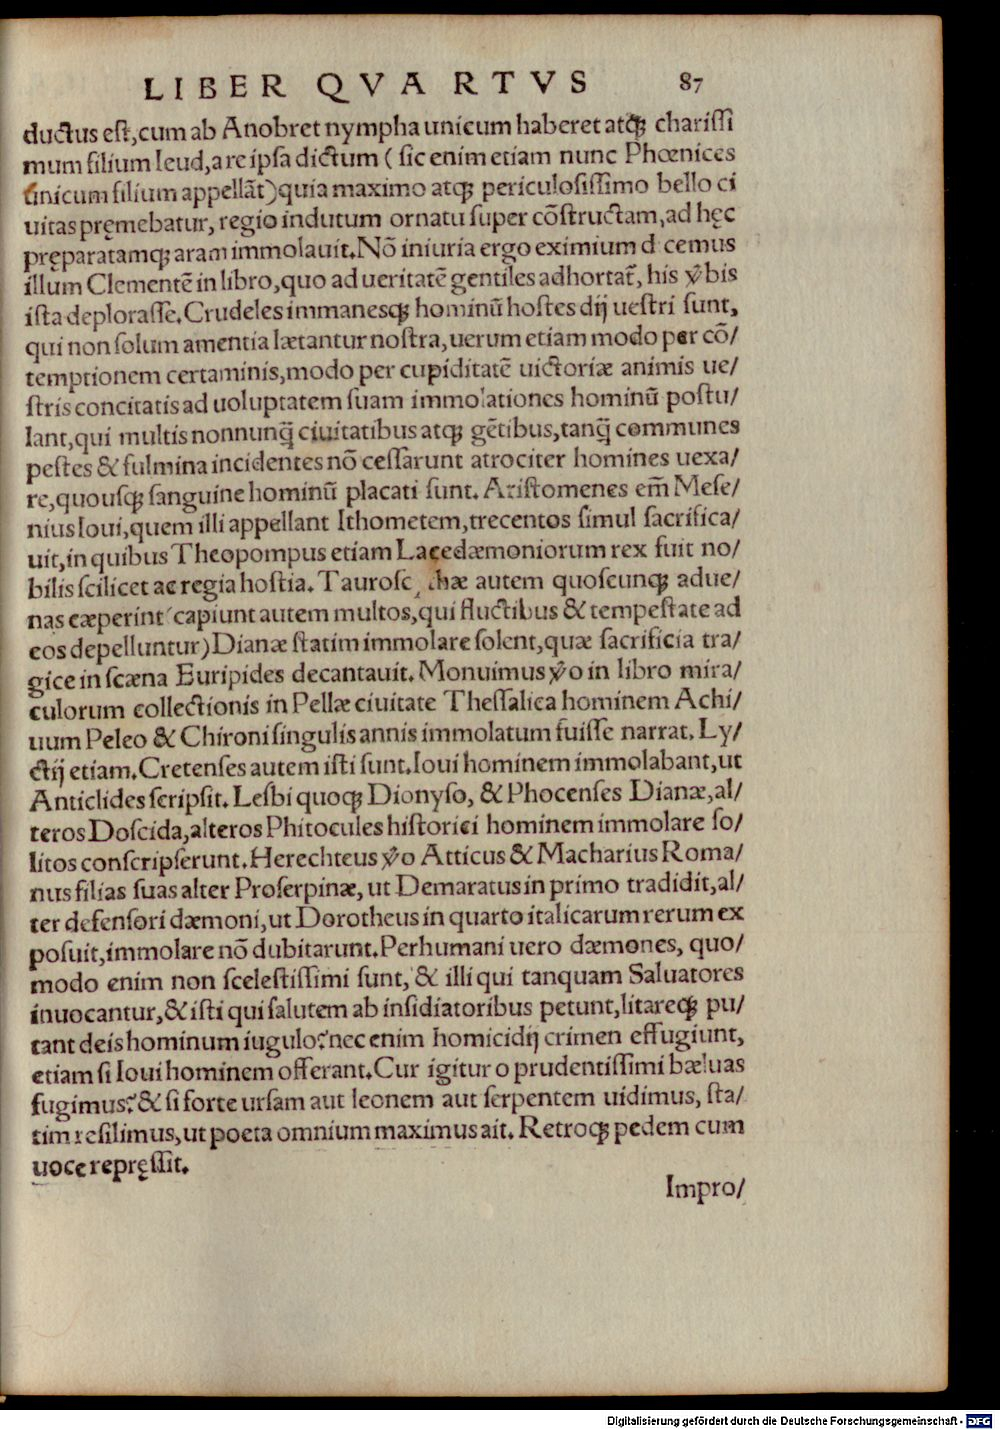 LIBER QVARTVS 87
ductus est, cum ab Anobret nympha unicum haberet atq; charissi
mum filium Ieud, a re ipsa dictum ( sic enim etiam nunc Phœnices
unicum filium appellãt) quia maximo atq; periculosissimo bello ci
uitas pręmebatur, regio indutum ornatu super cõstructam, ad hęc
pręparatamq; aram immolauit. Nõ iniuria ergo eximium d cemus
illum Clementẽ in libro, quo ad ueritatẽ gentiles adhortat̃, his ṽbis
ista deplorasse. Crudeles immanesq; hominũ hostes dij uestri sunt,
qui non solum amentia lætantur nostra, uerum etiam modo per cõ/
temptionem certaminis, modo per cupiditatẽ uictoriæ animis ue/
stris concitatis ad uoluptatem suam immolationes hominũ postu/
lant, qui multis nonnunq̃ ciuitatibus atq; gẽtibus, tanq̃ communes
pestes & fulmina incidentes nõ cessarunt atrociter homines uexa/
re, quousq; sanguine hominũ placati sunt. Aristomenes em̃ Mese/
nius Ioui, quem illi appellant Ithometem, trecentos simul sacrifica/
uit, in quibus Theopompus etiam Lacedæmoniorum rex fuit no/
bilis scilicet ac regia hostia. Taurosc hæ autem quoscunq; adue/
nas cæperint (capiunt autem multos, qui fluctibus & tempestate ad
eos depelluntur) Dianæ statim immolare solent, quæ sacrificia tra/
gice in scæna Euripides decantauit. Monuimus ṽo in libro mira/
culorum collectionis in Pellæ ciuitate Thessalica hominem Achi/
uum Peleo & Chironi singulis annis immolatum fuisse narrat. Ly/
ctij etiam. Cretenses autem isti sunt. Ioui hominem immolabant, ut
Anticlides scripsit. Lesbi quoq; Dionyso, & Phocenses Dianæ, al/
teros Doscida, alteros Phitocules historici hominem immolare so/
litos conscripserunt. Herechteus ṽo Atticus & Macharius Roma/
nus filias suas alter Proserpinæ, ut Demaratus in primo tradidit, al/
ter defensori dæmoni, ut Dorotheus in quarto italicarum rerum ex
posuit, immolare nõ dubitarunt. Perhumani uero dæmones, quo/
modo enim non scelestissimi sunt, & illi qui tanquam Saluatores
inuocantur, & isti qui salutem ab insidiatoribus petunt, litareq; pu/
tant deis hominum iugulo? nec enim homicidij crimen effugiunt,
etiam si Ioui hominem offerant. Cur igitur o prudentissimi bæluas
fugimus? & si forte ursam aut leonem aut serpentem uidimus, sta/
tim resilimus, ut poeta omnium maximus ait. Retroq; pedem cum
uoce repręssit.
Impro/
Digitalisierung gefördert durch die Deutsche Forschungsgemeinschaft - DFG